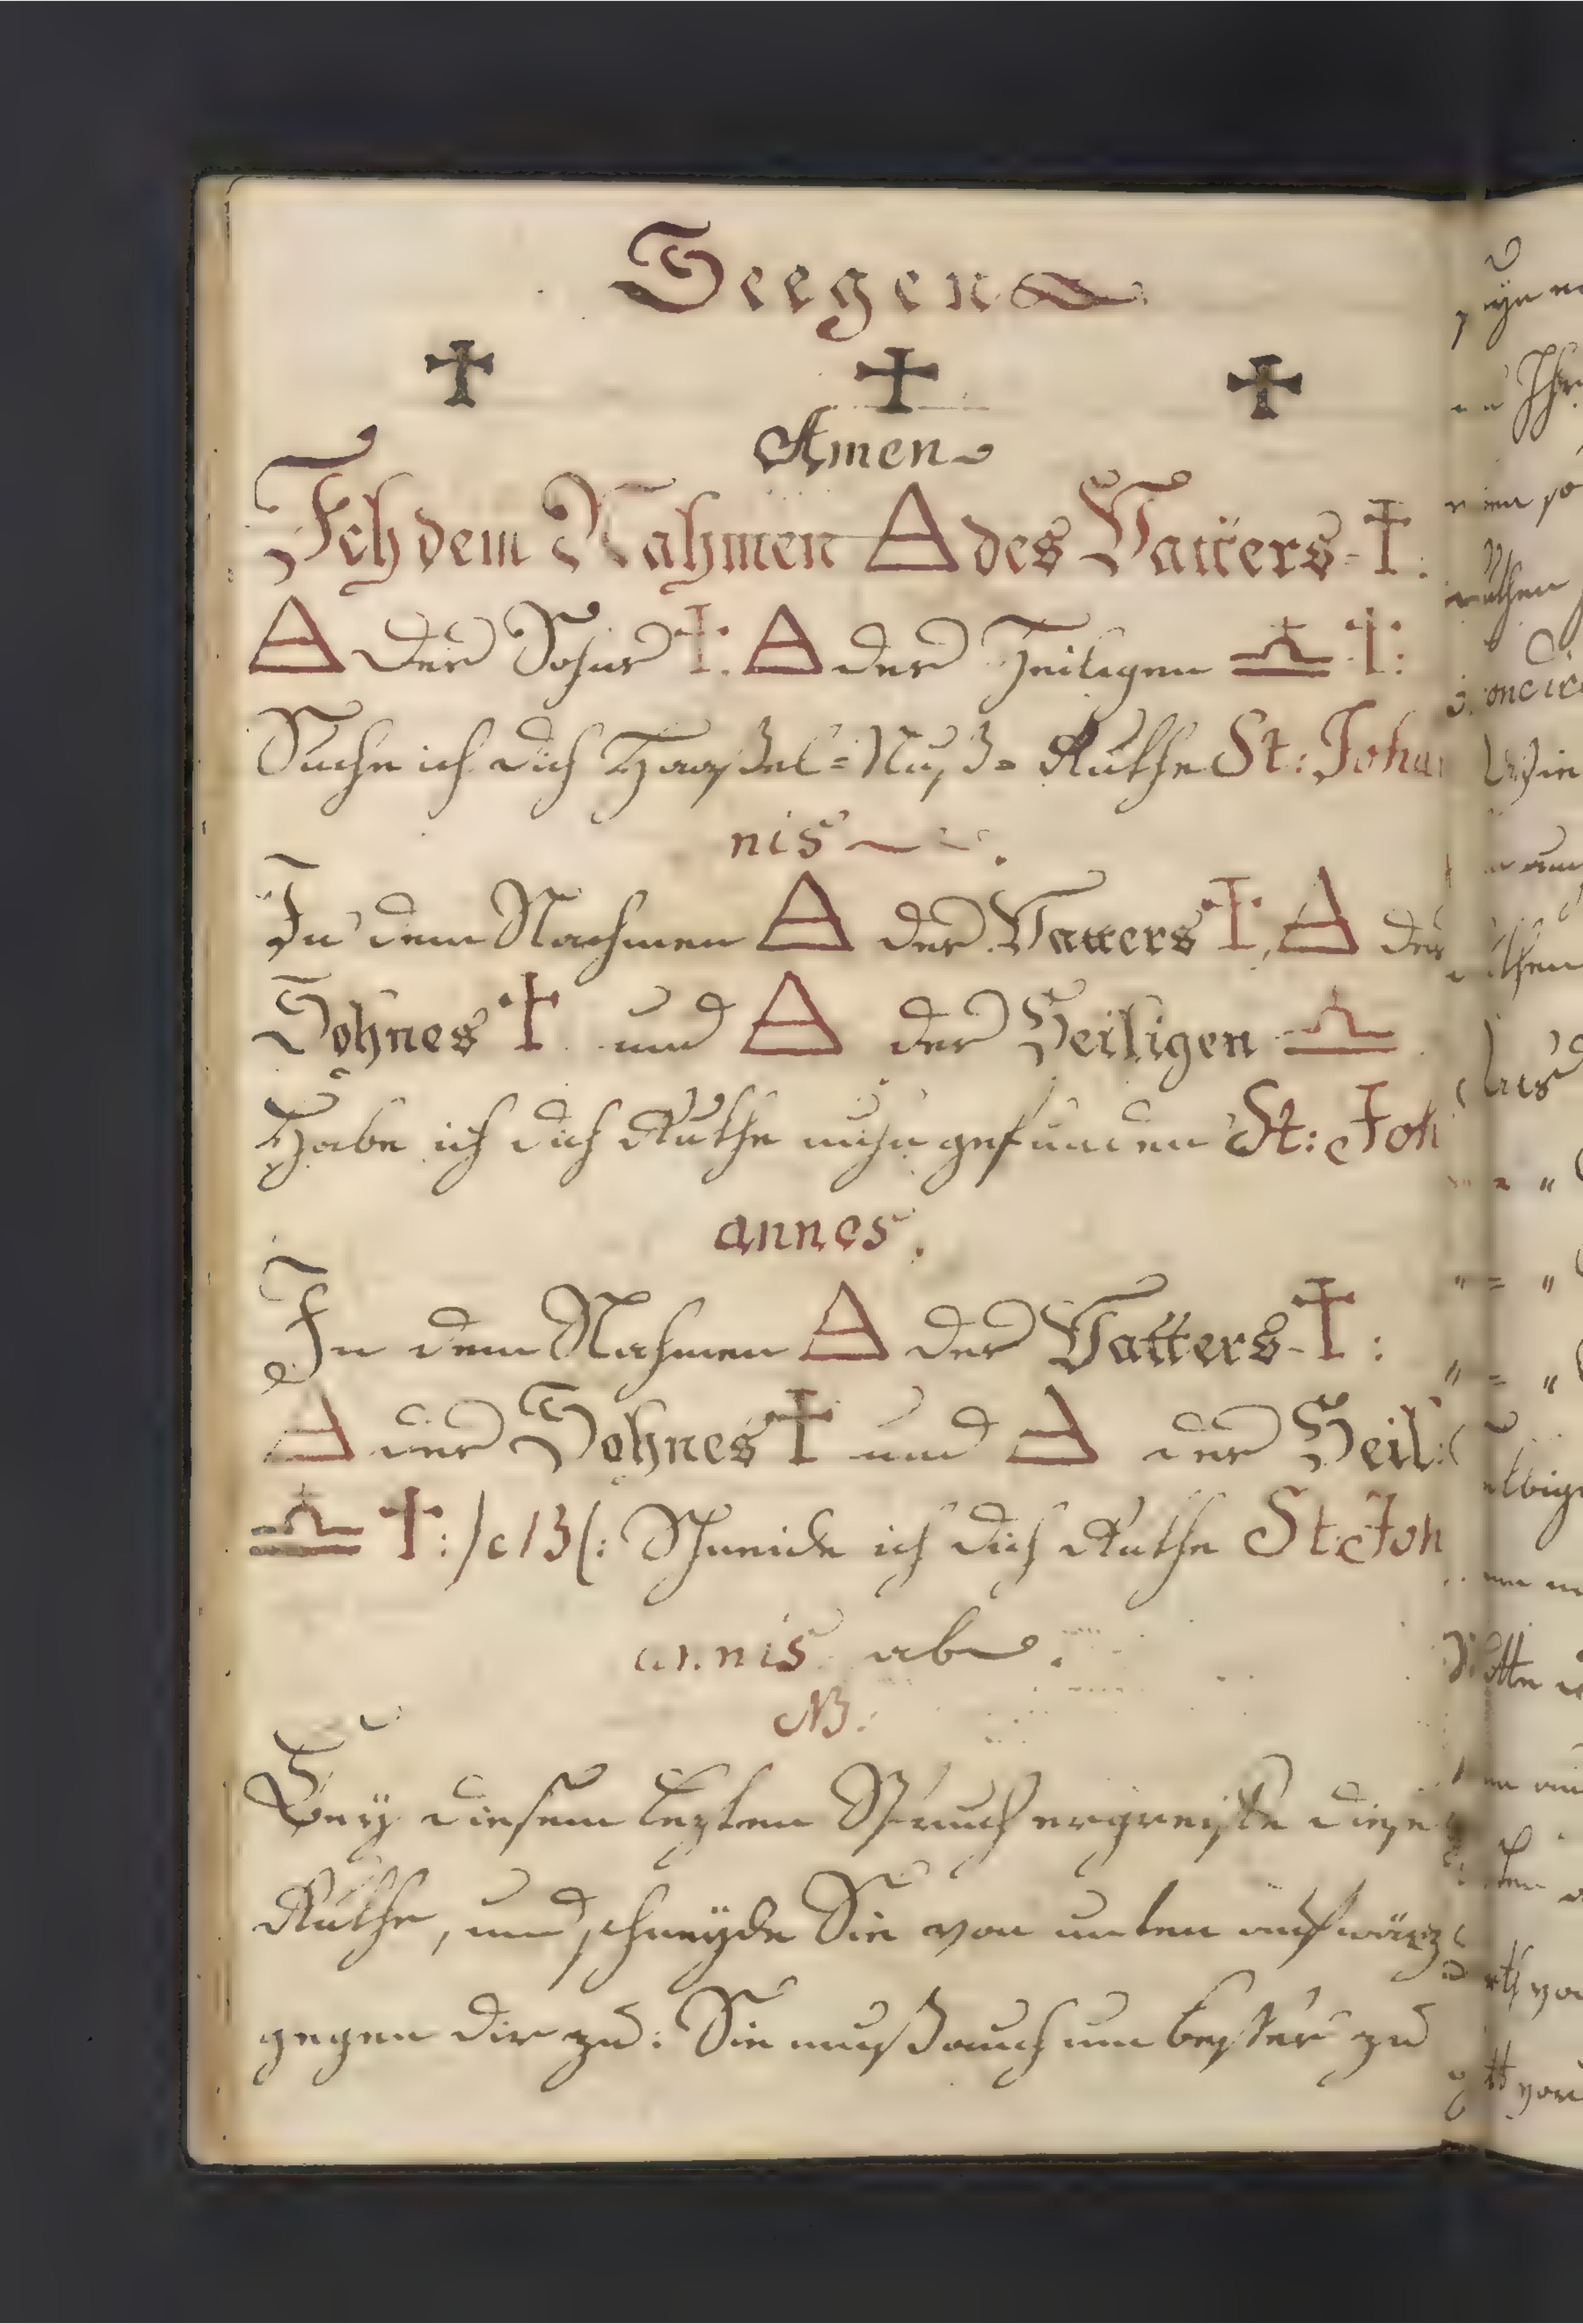 Seegen
✝ ✝ ✝
Amen
Jch dem Nahmen 🜁 des Vatters ✝:
🜁 der Sohns ✝: 🜁 der Heiligen ♎ ✝:
Suche ich dich Haaßel=Nuß= Ruthe St: Johan
nis
In dem Nachmen 🜁 der Vatters ✝, 🜁 der
Sohnes ✝ und 🜁 der Heiligen ♎
Habe ich dich Ruthe nuhn gefunden St: Joh
annes.
In dem Nahmen 🜁 der Vatters ✝:
🜁 der Sohnes ✝ und 🜁 der Heil:
♎ ✝: Schneide ich dich Ruthe St: Joh
annis ab.
NB:
Bey diesem lezten Spruch ergreiffe diese
Ruthe, und schneyde Sie von unten aufwärz
gegen dir zu: Sie muß auch um besser zu